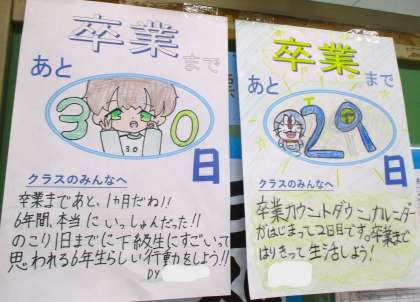 卒業まで
あと
30
日
クラスのみんなへ
卒業まであと、1ヵ月だね!!
6年間、本当にいっしょんだった!!
のこり1日までに下級生にすごいって
思われる6年生らしい行動をしよう!!
BY
3.0
卒業まで
あと
29
日
クラスのみんなへ
卒業カウントダウンカレンダー
がはじまって2日目です。卒業まで
はりきって生活しよう!